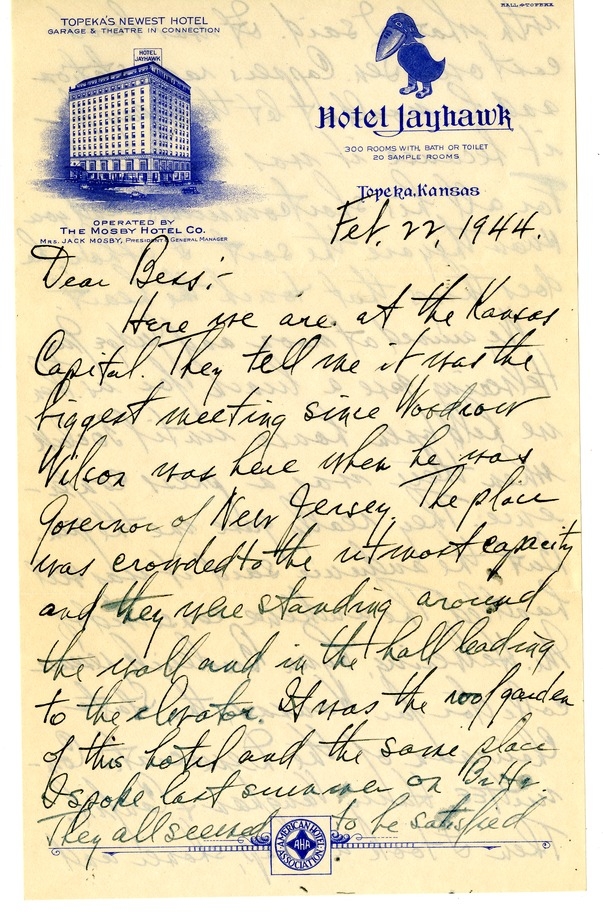 HALL-TOPEKA
TOPEKA'S NEWEST HOTEL
GARAGE & THEATRE IN CONNECTION
HOTEL
JAYHAWK
Hotel Jayhawk
300 ROOMS WITH BATH OR TOILET
20 SAMPLE ROOMS
Topeka, Kansas
OPERATED BY
THE MOSBY HOTEL CO.
MRS. JACK MOSBY, PRESIDENT & GENERAL MANAGER
Feb. 22, 1944.
Dear Bess:-
Here we are at the Kansas
Capital. They tell me it was the
biggest meeting since Woodrow
Wilson was here when he was
Governor of New Jersey. The place
was crowded to the utmost capacity
and they were standing around
the wall and in the hall leading
to the elevator. It was the roof garden
of this hotel and the same place
I spoke last summer on
They all seemed to be satisfied
AMERICAN HOTEL
AHA
ASSOCIATION